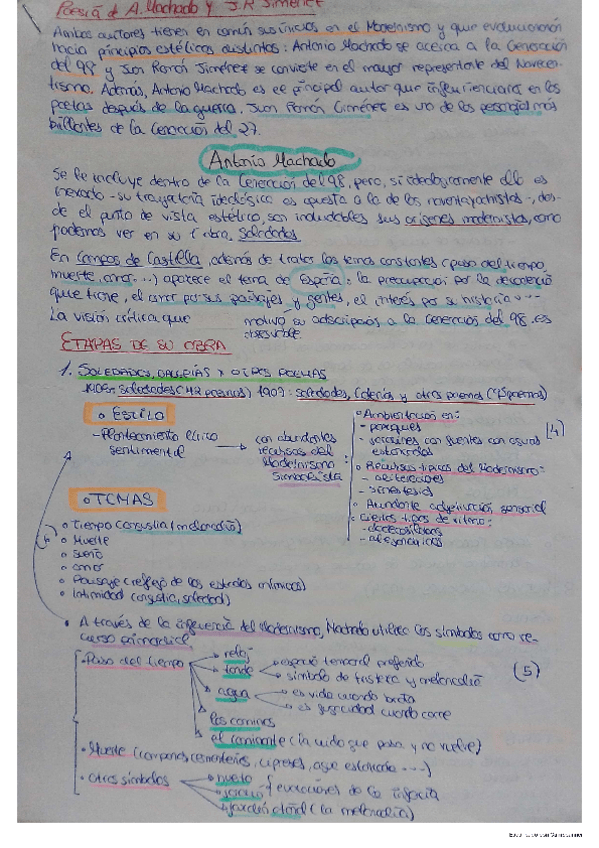 Poesía de A. Machado y J.R. Jiménez
Ambos autores tienen en común sus inicios en el Modernismo y que evolucionaron
hacia principios estéticos distintos: Antonio Machado se acerca a la Generación
del 98 y Juan Ramón Jiménez se convierte en el mayor representante del Novecen-
tismo. Además, Antonio Machado es el principal autor que influenciará en los
poetas después de la guerra. Juan Ramón Jiménez es uno de los personajes más
brillantes de la Generación del 27.
Antonio Machado
Se le incluye dentro de la Generación del 98, pero, si ideológicamente ello es
inexacto - su trayectoria ideológica es opuesta a la de los noventayochistas -, des-
de el punto de vista estético, son indudables sus orígenes modernistas, como
podemos ver en su 1ª obra, Soledades
En Campos de Castilla, además de tratar los temas constantes (paso del tiempo,
muerte, amor...) aparece el tema de España: la preocupación por la decadencia
que tiene, el amor por sus paisajes y gentes, el interés por su historia...
La visión crítica que motivó su adscripción a la Generación del 98, es
ETAPAS DE SU OBRA
1. SOLEDADES, GALERÍAS Y OTROS POEMAS
Soledades (42 poemas) 1907: Soledades, Galerías y otros poemas (95 poemas)
ESTILO
- Planteamiento lírico
sentimental
con abundantes
recursos del
Modernismo
simbolista
Ambientación en:
- parques
- jardines con fuentes con aguas
estancadas
Recursos típicos del Modernismo:
- aliteraciones
- sinestesias
Abundante adjetivación sensorial
Ciertos tipos de ritmo:
- dodecasílabos
- alejandrinos
[4]
TEMAS
Tiempo (angustia/melancolía)
Muerte
Sueño
Amor
Paisaje (reflejo de los estados anímicos)
Intimidad (angustia, soledad)
A través de la influencia del Modernismo, Machado utiliza los símbolos como re-
curso primordial
- Paso del tiempo
reloj
tarde
espacio temporal preferido
símbolo de tristeza y melancolía
(5)
agua
es vida cuando brota
es fugacidad cuando corre
los caminos
el caminante (la vida que pasa y no vuelve)
- Muerte (campanas, cementerios, cipreses, agua estancada ...)
- Otros símbolos
huerto
evocaciones de la infancia
jardín otoñal (la melancolía)